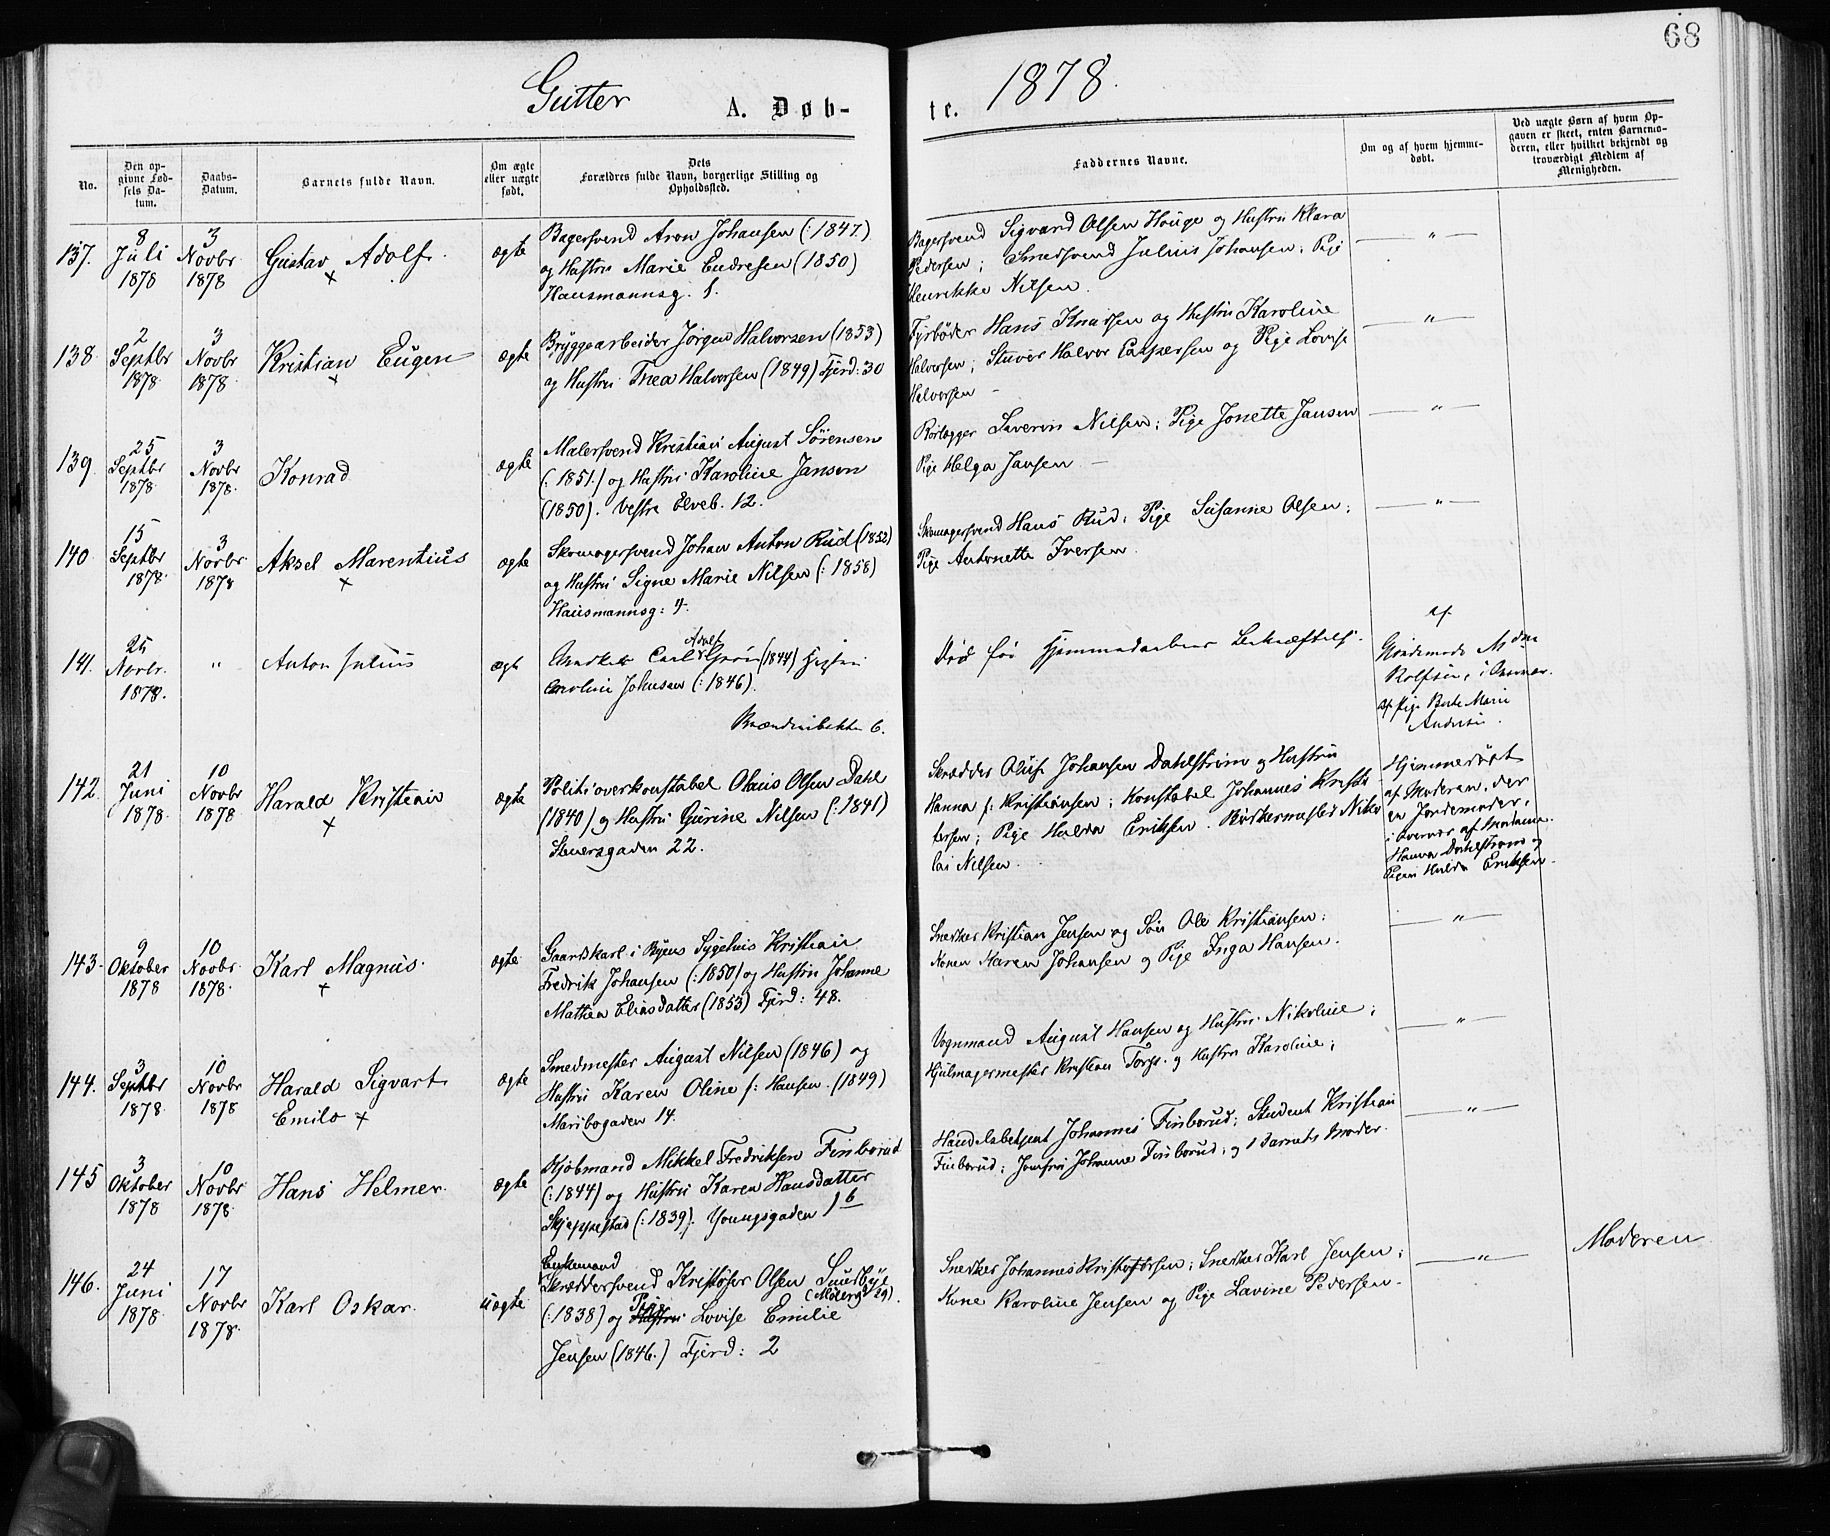 68
Gutter A. Døb- te. 1878.
No.
Den opgivne Fødsels Datum.
Daabs-Datum.
Barnets fulde Navn.
Om ægte eller uægte født.
Dets Forældres fulde Navn, borgerlige Stilling og Opholdssted.
Faddernes Navne.
Om og af hvem hjemmedøbt.
Ved uægte Børn af hvem Opgaven er skeet, enten Barnemoderen, eller hvilket bekjendt og troværdigt Medlem af Menigheden.
137. 8 Juli 1878 3 Novbr 1878 Gustav Adolf. ægte
Bagersvend Aron Johansen (: 1847.)
og Hustru Marie Endresen (1850)
Hausmannsg. 1.
Bagersvend Sigvard Olsen Houge og Hustru Klara
Pedersen; Smedsvend Julius Johansen; Pige
Henrikke Nilsen.
"
138. 2 Septbr 1878 3 Novbr 1878. Kristian Eugen ægte
Bryggearbeider Jörgen Halvorsen (1853)
og Hustru Thea Halvorsen (1849) Fjerd: 30
Fyrbøder Hans Knudsen og Hustru Karoline
Halvorsen; Stuver Halvor Caspersen og Pige Lovise
Halvorsen
"
139. 25 Septbr 1878 3 Novbr 1878. Konrad ægte
Malersvend Kristian August Sörensen
(: 1851.) og Hustru Karoline Janson
(1850). Vestre Elveb. 12.
Rørlægger Severin Nilsen; Pige Jonette Jansen
Pige Helga Jansen
"
140. 15 Septbr 1878. 3 Novbr 1878 Aksel Marentius ægte
Skomagersvend Johan Anton Rud (1852)
og Hustru Signe Marie Nilsen (: 1858)
Hausmannsg: 4.
Skomagersvend Hans Rud; Pige Susanne Olsen;
Pige Antonette Iversen.
"
141. 25 Novbr. 1878. " Anton Julius ægt
Carl Adolf Grön (1844) Hustru
Caroline Johnsen (: 1846).
6.
Død før Hjemmedaabens Bekræftelse.
af
Rolfsen, i Overvær.
af Pige Berte Marie
Andersen.
142. 21 Juni 1878. 10 Novbr 1878 Harald Kristian ægte
Politioverkonstabel Olaus Olsen Dahl
(1840) og Hustru Gurine Nilsen (: 1841)
Stenersgaden 22.
Skrædder Oluf Johansen Dahlström og Hustru
Hanna f: Kristiansen; Konstabel Johannes Kristo
fersen; Pige Hulda Eriksen. Bødkermester Niko
lai Nilsen.
Hjemmedøbt
af Moderen, der
er Jordemoder,
i Overvær af Madame
Hanna Dahlström og
Pigen Hulda Eriksen.
143. 9 Oktober 1878 10 Novbr. 1878. Karl Magnus. ægte
Gaardskarl i Byens Sygehus Kristian
Fredrik Johansen (: 1850) og Hustru Johanne
Mathea Eliasdatter (1853) Fjerd: 48.
Snedker Kristian Jensen og Søn Ole Kristiansen;
Konen Maren Johansen og Pige Inga Hansen.
"
144. 3 Septbr 1878. 10 Novbr 1878 Harald Sigvart
Emilo ægte
Smedmester August Nilsen (1846) og
Hustru Karen Oline f: Hansen. (1849)
Maribogaden 14.
Vognmand August Hansen og Hustru Nikoline;
Hjulmagermester Kristian Torp. og Hustru Karoline;
"
145 3 Oktober 1878 10 Novbr 1878. Hans Helmer. ægte
Kjöbmand Mikkel Fredriksen Finborud
(: 1844) og Hustru Karen Hansdatter
Skjeppestad (: 1839). Youngsgaden 1 b
Handelsbetjent Johannes Finborud; Student Kristian
Finborud; Jomfru Johanne Finborud; og Barnets Moder.
"
146. 24 Juni 1878. 17 Novbr 1878. Karl Oskar. uægte
Enkemand
Skræddersvend Kristofer Olsen Sundbye
(: 1838) og Hustru Pige Lovise Emilie (Möllerg 29).
Jensen (1846.) Fjerd: 2
Snedker Johannes Kristofersen; Snedker Karl Jensen;
Kone Karoline Jensen og Pige Lavine Pedersen.
"
Moderen